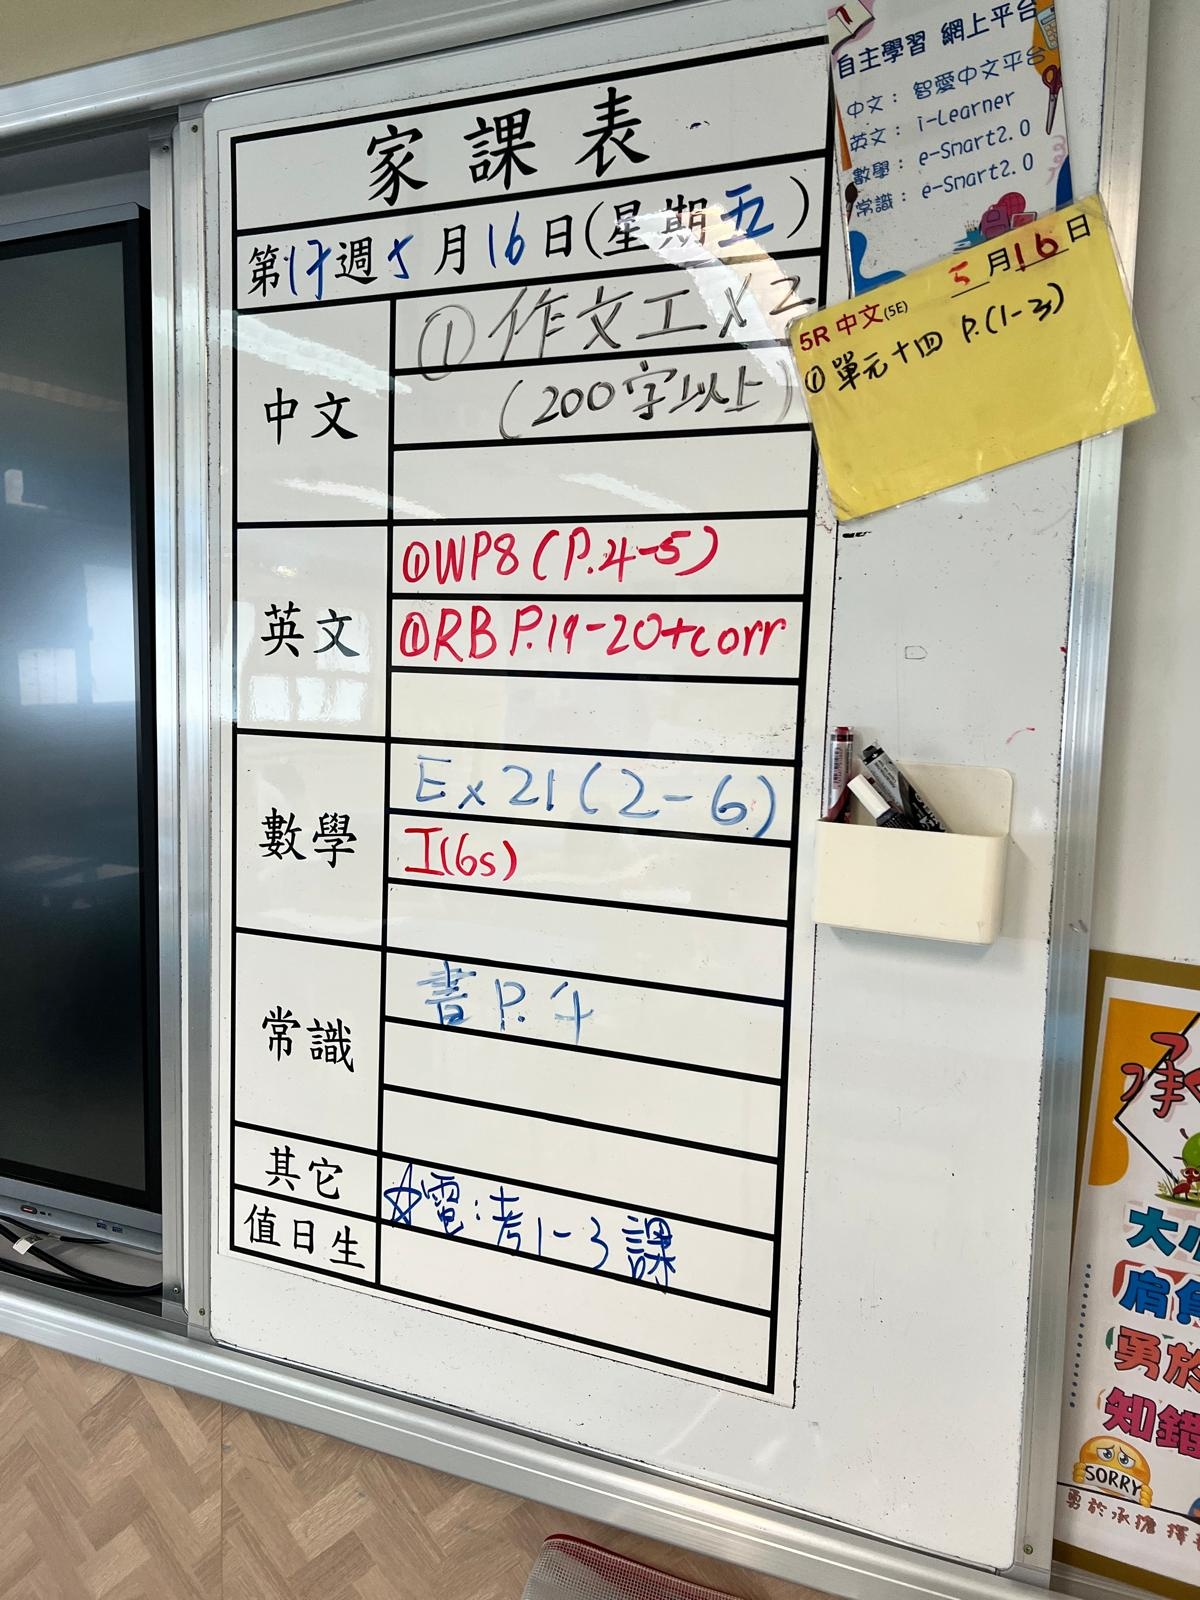 家課表
第17週5月16日(星期五)
中文
①作文工x2
(200字以上)
英文
①WP8(P.4-5)
①RB P.19-20+corr
數學
Ex21(2-6)
工(6s)
常識
書P.
其它
☆電:考1-3課
值日生
自主學習 網上平台
中文: 智愛中文平台
英文: i-Learner
數學: e-Smart2.0
常識: e-Smart2.0
5月16日
5R 中文(5E)
①單元十四 P.(1-3)
大
肩
勇於
知錯
SORRY
勇於承擔